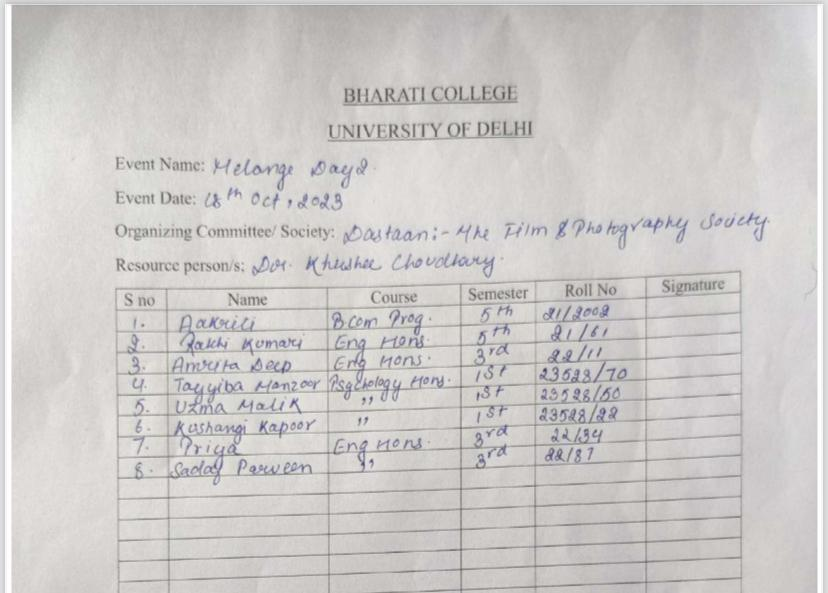 BHARATI COLLEGE
UNIVERSITY OF DELHI
Event Name: Melange Day 2
Event Date: 18th Oct, 2023
Organizing Committee/ Society: Dastaan:- The Film & Photography Society.
Resource person/s: Dr. Khushee Choudhary.
S no Name Course Semester Roll No Signature
1. Aakriti B.Com Prog. 5th 21/2002
2. Rakhi Kumari Eng Hons. 5th 21/61
3. Amrita Deep Eng Hons. 3rd 22/11
4. Tayyiba Manzoor Psychology Hons. 1st 23528/70
5. Uzma Malik " 1st 23528/50
6. Kashangi Kapoor " 1st 23528/22
7. Priya Eng Hons. 3rd 22/34
8. Sadaf Parween " 3rd 22/87